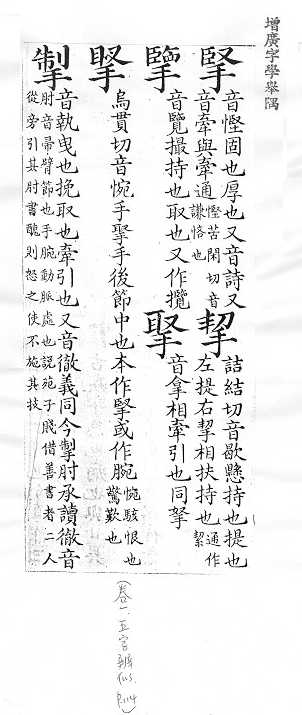 增廣字學舉隅
掔
音慳固也厚也又音詩又
音牽與牽通
慳苦閑切音
謙恪也
挈
詰結切音歇懸持也提也
左提右挈相扶持也
通作
絜
擥
音覽撮持也取也又作攬
音拿相牽引也同拏
烏貫切音惋手掔手後節中也本作掔或作腕
惋駭恨也
驚歎也
掣
音執曳也挽取也牽引也又音徹義同今掣肘承讀徹音
肘音帚臂節也手腕動脈處也説苑子賤借善書者二人
從旁引其肘書醜則怒之使不施其技
(卷一.五官辨似 P.114)